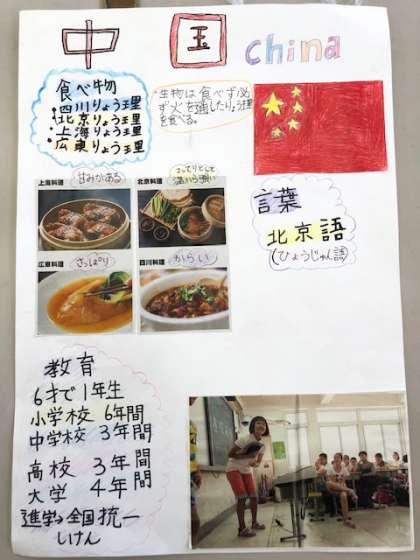 中国 china
食べ物
・四川りょう理
・北京りょう理
・上海りょう理
・広東りょう理
・生物は食べず必
ず火を通したりょう理
を食べる。
上海料理 甘みがある
北京料理
広東料理 さっぱり
四川料理 からい
言葉
北京語
(ひょうじゅん語)
教育
6才で1年生
小学校 6年間
中学校 3年間
高校 3年間
大学 4年間
進学→全国統一
しけん